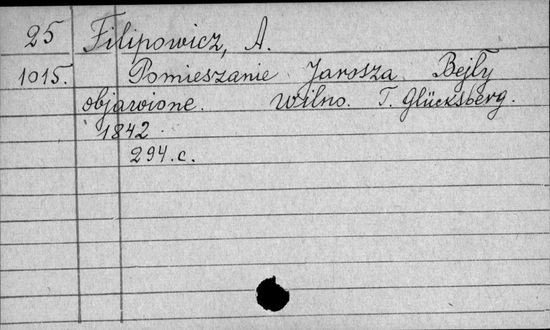 25 Filipowicz, A.
1015. Pomieszanie Jarosza Bejły
objawione. Wilno. T. Glücksberg.
1842.
294.c.